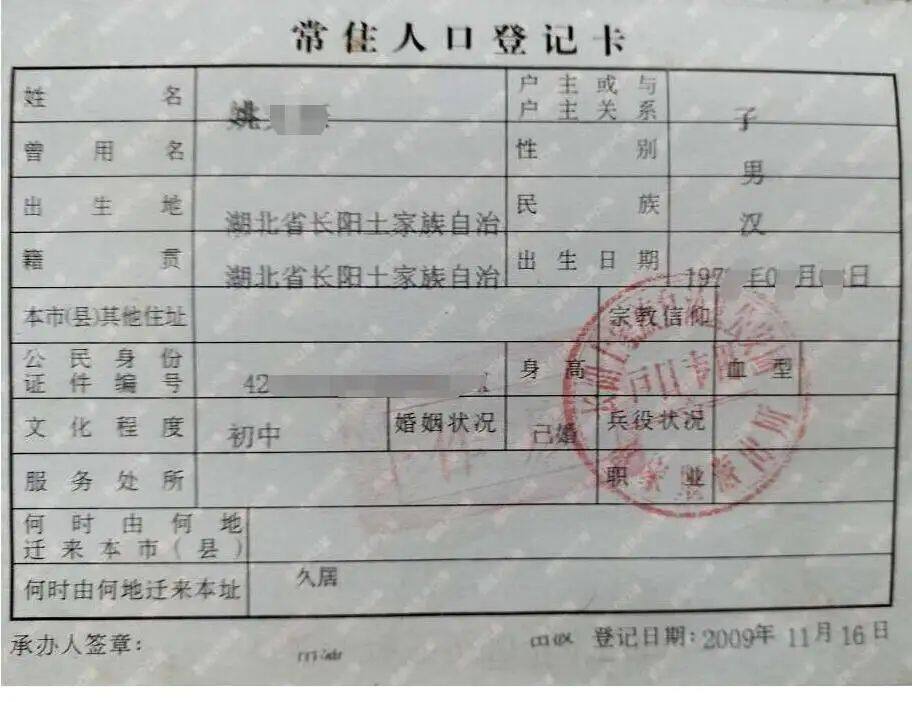 常住人口登记卡
姓名 姚 户主或与户主关系 子
曾用名 性别 男
出生地 湖北省长阳土家族自治 民族 汉
籍贯 湖北省长阳土家族自治 出生日期 197 年0 月 日
本市(县)其他住址 宗教信仰
公民身份证件编号 42 身高 血型
文化程度 初中 婚姻状况 已婚 兵役状况
服务处所 职业
何时由何地迁来本市(县)
何时由何地迁来本址 久居
承办人签章: 登记日期:2009年11月16日